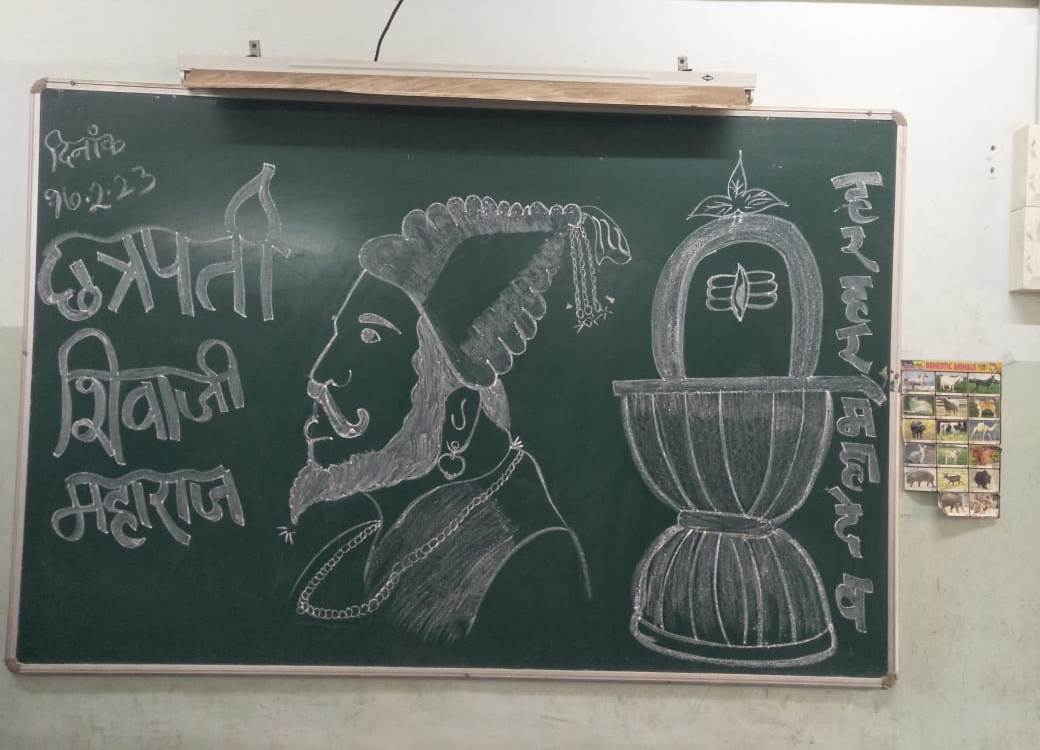 दिनांक
१७.२.२३
छत्रपती
शिवाजी
महाराज
हर हर महादेव
DOMESTIC ANIMALS